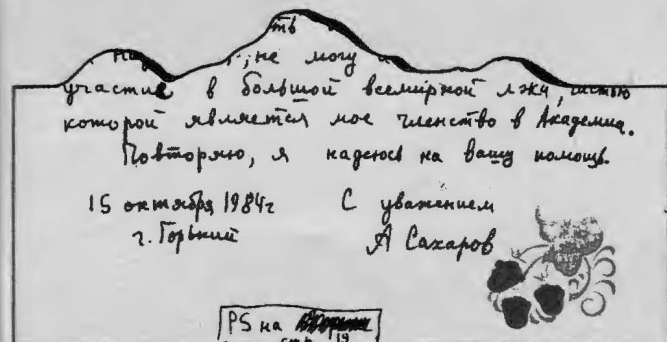 ть
; не могу
участие в большой всемирной лжи, частью
которой является мое членство в Академии.
Повторяю, я надеюсь на вашу помощь.
15 октября 1984г С уважением
г. Горький А Сахаров
PS на
стр 19